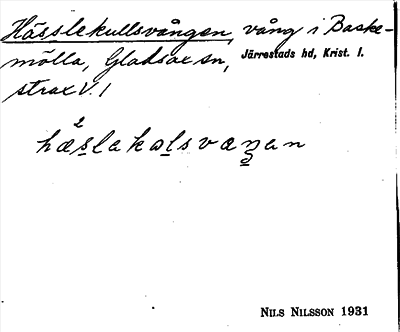 Hässlekullsvången, vång i Baske-
mölla, Gladsax sn, Järrestads hd, Krist. l.
strax V. l
2
hæslakalsvæŋan
NILS NILSSON 1931